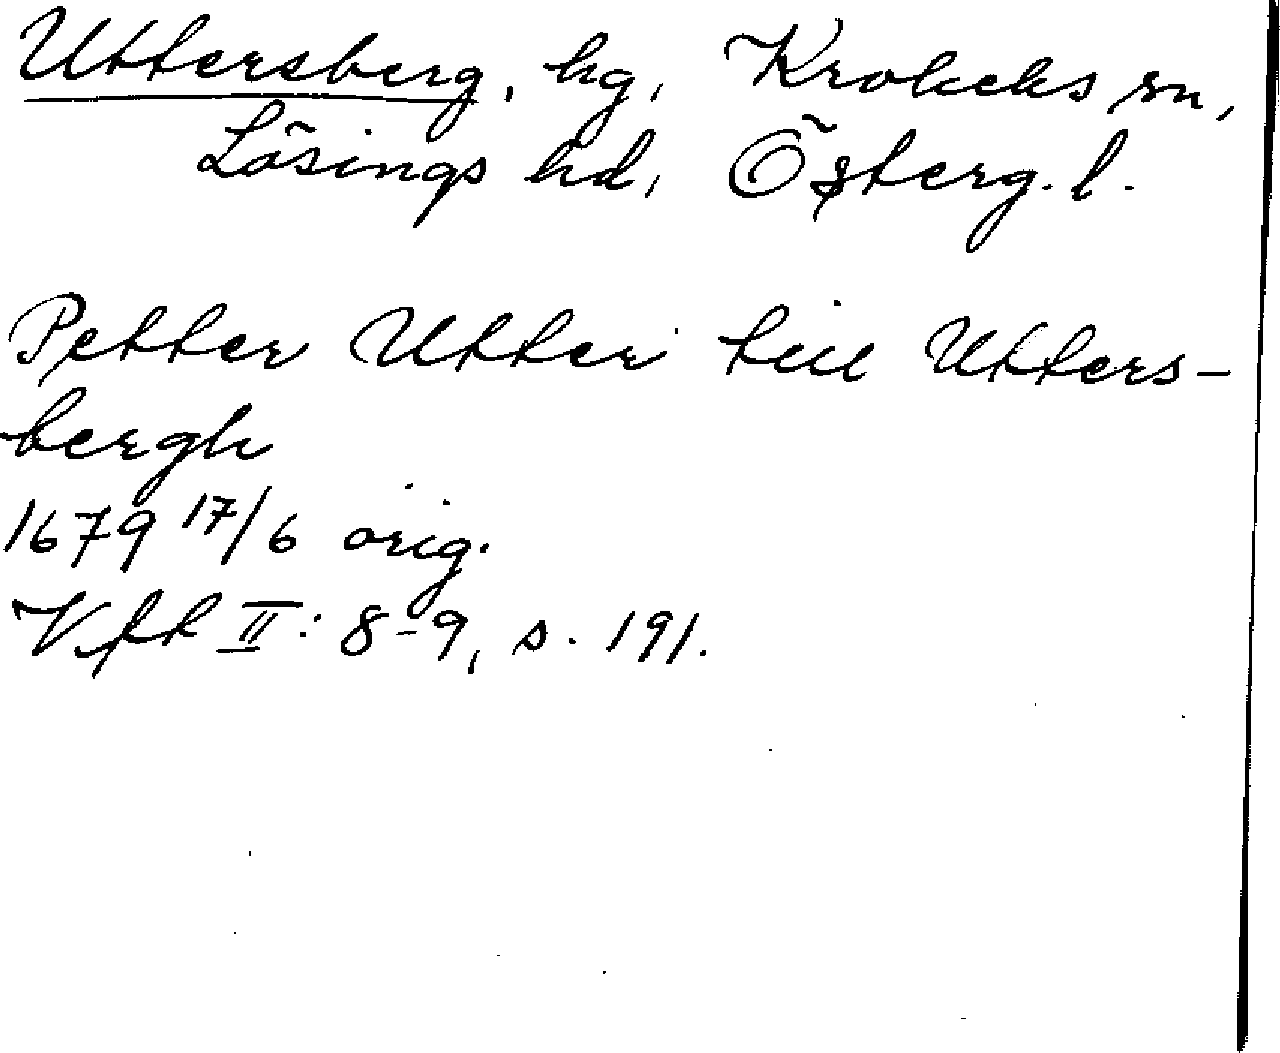 Uttersberg, hg, Krokeks sn,
Lösings hd, Österg. l.
Petter Utter till Utters-
bergh
1679 17/6 orig.
II: 8-9, s. 191.